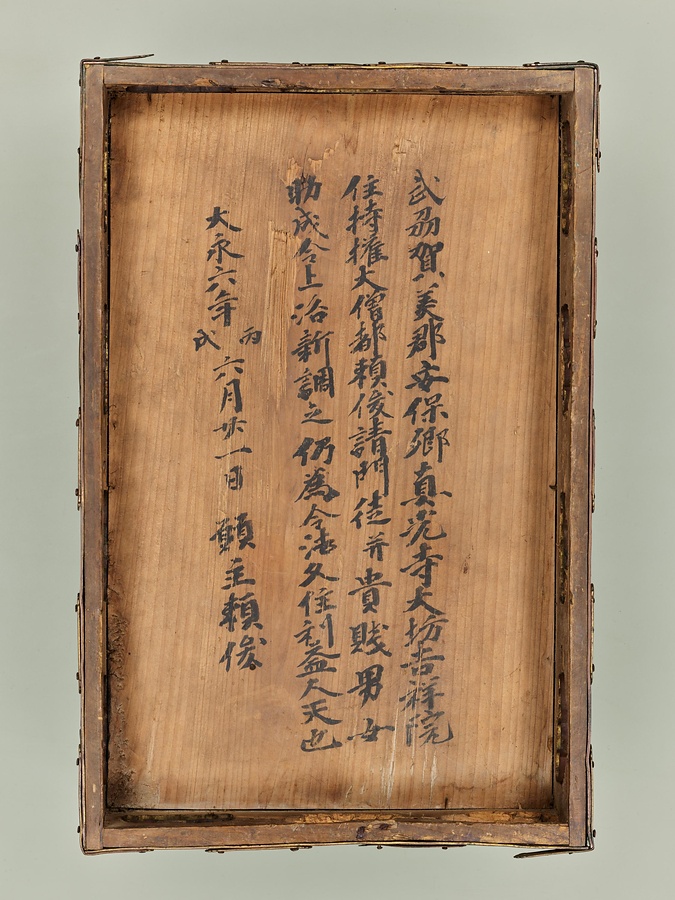 武刕賀美郡安保郷真光寺大坊吉祥院
住持権大僧都頼俊請門徒并貴賎男女
助成令上洛新調之仍為令法久住利益人天也
大永六年丙戌六月廿一日 願主頼俊